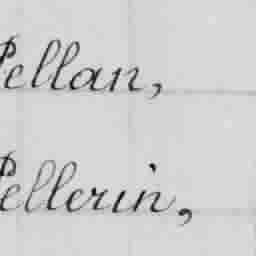 Pellan,
Pellerin,